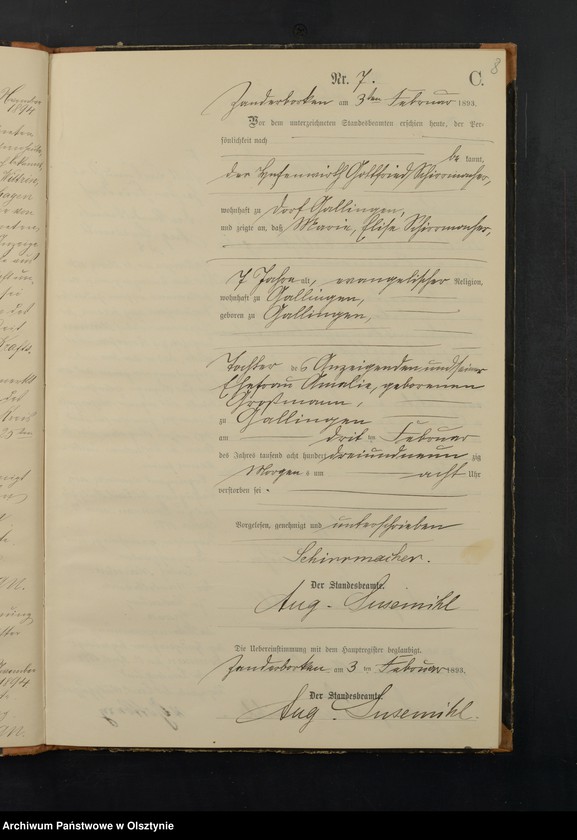 8
Nr. 7. C.
Zanderborken am 3ten Februar 1893.
Vor dem unterzeichneten Standesbeamten erschien heute, der Per-
sönlichkeit nach
be kannt,
der Hufenwirth Gottfried Schirrmacher,
wohnhaft zu Dorf Gallingen,
und zeigte an, daß Marie, Elise Schirrmacher,
7 Jahre alt, evangelischer Religion,
wohnhaft zu Gallingen,
geboren zu Gallingen,
Tochter des Anzeigenden und seiner
Ehefrau Amalie, geborenen
Großmann,
zu Gallingen
am drit ten Februar
des Jahres tausend acht hundert dreiundneun zig
Morgen s um acht Uhr
verstorben sei.
Vorgelesen, genehmigt und unterschrieben
Schirrmacher.
Der Standesbeamte.
Aug. Susemihl
Die Uebereinstimmung mit dem Hauptregister beglaubigt.
Zanderborken am 3 ten Februar 1893.
Der Standesbeamte.
Aug. Susemihl.
Archiwum Państwowe w Olsztynie